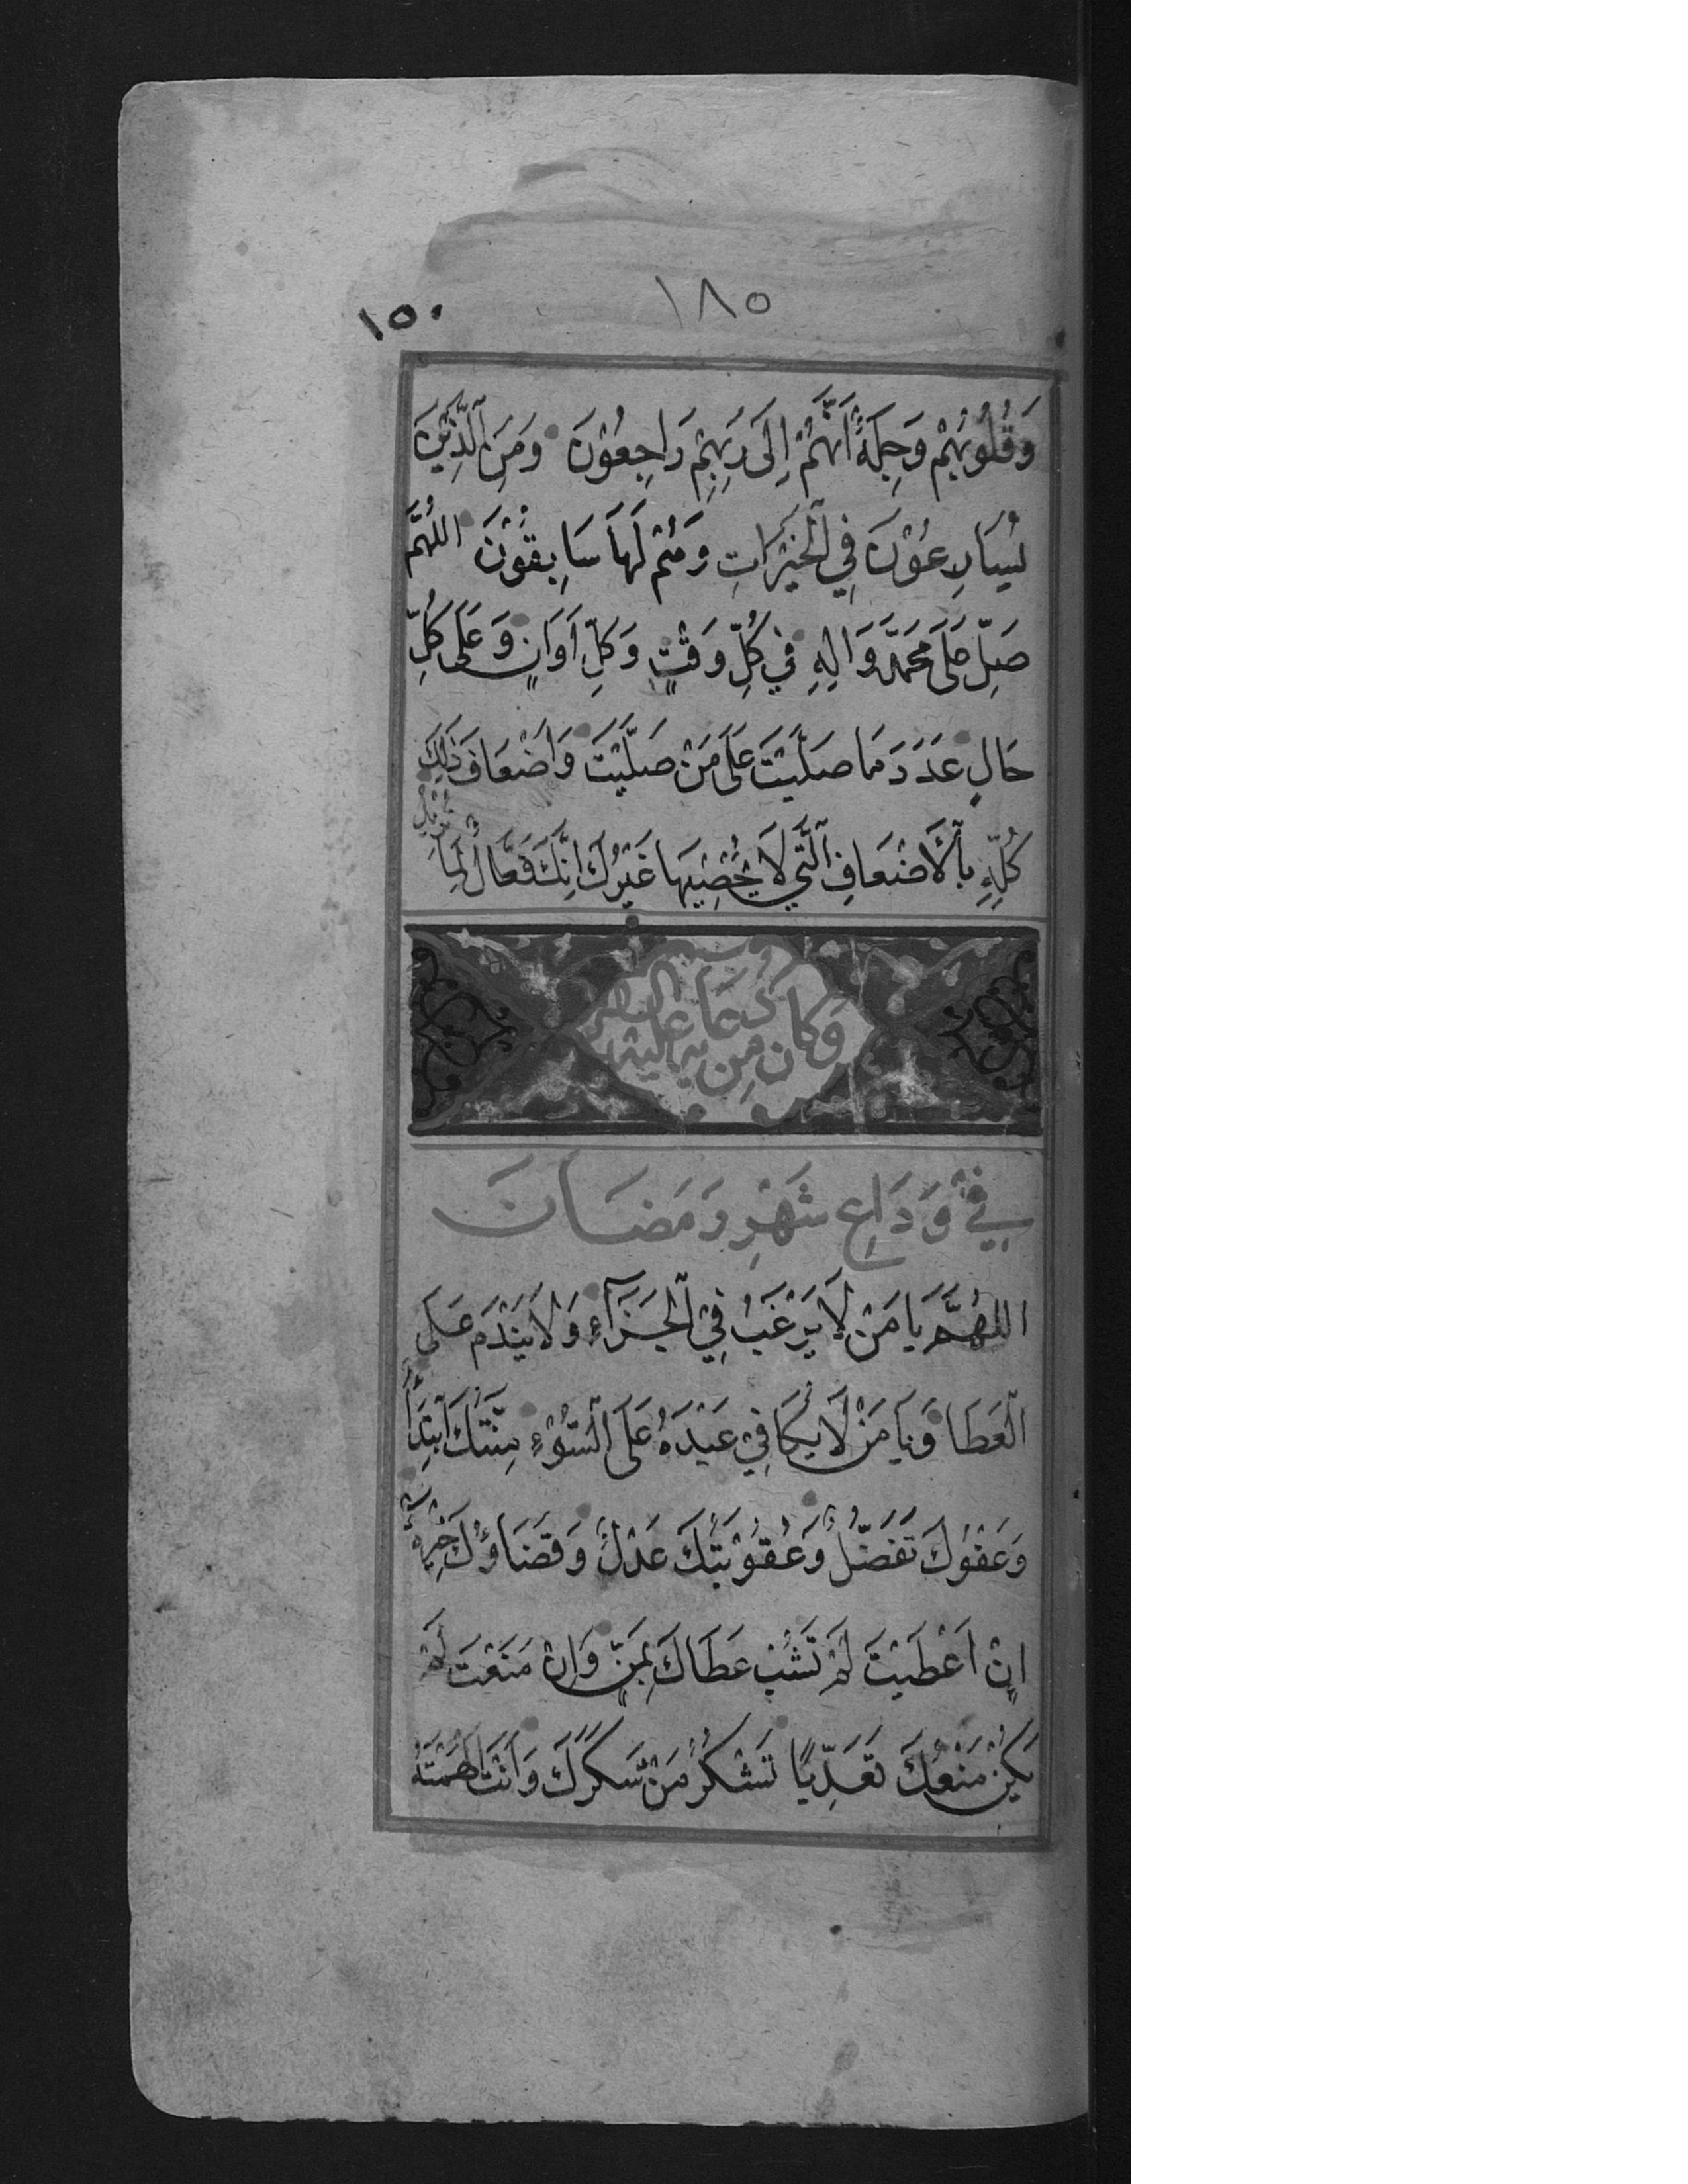 ١٨٥
١٥٠
وَقُلُوبُهُمْ وَجِلَةٌ اَنَّهُمْ اِلَى رَبِهِمْ رَاجِعُوْنَ وَمِنَ الَّذِيْنَ
يُسَارِعُوْنَ فِي الْخَيْرَاتِ وَهُمْ لَهَا سَابِقُوْنَ اللهُمَّ
صَلِّ عَلَى مُحَمَّدٍ وَالِهِ فِي كُلِّ وَقْتٍ وَكُلِّ اَوَانٍ وَعَلَى كُلِّ
حَالٍ عَدَدَ مَا صَلَّيْتَ عَلَى مَنْ صَلَّيْتَ وَاَضْعَافَ ذٰلِكَ
كُلِّهِ بِالْاَضْعَافِ الَّتِي لَا يُحْصِيْهَا غَيْرُكَ اِنَّكَ فَعَّالٌ لِمَا
تُرِيْدُ
وَكَانَ مِنْ دُعَائِهِ عَلَيْهِ
فِيْ وَدَاعِ شَهْرِ رَمَضَانَ
اللهُمَّ يَا مَنْ لَا يَرْغَبُ فِي الْجَزَآءِ وَلَا يَنْدَمُ عَلَى
الْعَطَا وَيَا مَنْ لَا يُكَافِيْ عَبْدَهُ عَلَى السَّوْءِ مِنَّتُكَ ابْتِدَاءٌ
وَعَفْوُكَ تَفَضُّلٌ وَعُقُوْبَتُكَ عَدْلٌ وَقَضَاؤُكَ خِيَرَةٌ
اِنْ اَعْطَيْتَ لَمْ تَشُبْ عَطَاكَ بِمَنٍّ وَاِنْ مَنَعْتَ لَمْ
يَكُنْ مَنْعُكَ تَعَدِّيًا تَشْكُرُ مَنْ شَكَرَكَ وَاَنْتَ اَلْهَمْتَهُ